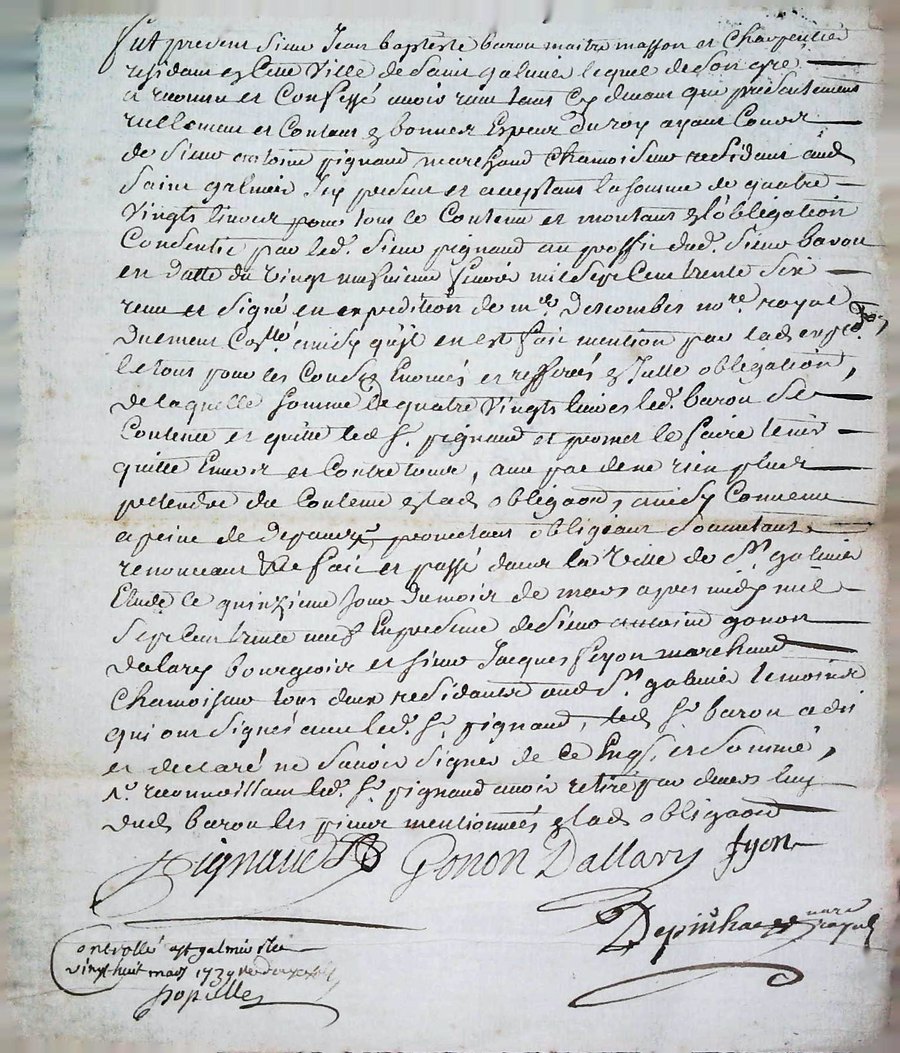 fut present sieur Jean baptiste baron maitre masson et Charpentier
residant en Cette Ville de Saint galmier lequel de son gré
a reconnu et Confessé avoir reçu tant Cy devant que presentement
réellement et Contant en bonnes Especes du roy ayant Cours
de sieur antoine pignaud marchand Chamoiseur residant aud
Saint galmier Icy present et acceptant la somme de quatre
Vingts livres pour tout le Contenu et montant en l'obligation
Consentie par led. sieur pignaud au proffit dud. sieur baron
en datte du Vingt neufvieme mil sept Cent trente six
recue et signé en expedition de me Descombes nore royal
Duement Collé ainsy quil en est fait mention par lad expon.
le tout pour les Causes Enoncés et refferés en Icelle obligation,
de laquelle somme de quatre Vingts livres led. baron se
Contente et quitte led sr. pignaud et promet le faire tenir
quitte Envers et Contre tous, avec pacte de ne rien plus
pretendre du Contenu en lad. obligaon, ainsy Convenu
a peine de depens promettant obligeant soumettant
renonceant &c fait et passé dans la Ville de St galmier
Etude le quinzieme Jour du mois de mars apres midy mil
sept Cent trente neuf En presence de sieur antoine gonon
dalary bourgeois et sieur Jacques fyon marchand
Chamoiseur tous deux residants aud St galmier temoins
qui ont signés avec led. sr. pignaud, led sr. baron a dit
et declaré ne savoir signer de ce Enqs. et sommé,
reconnoissant led. sr. pignaud avoir retiré par devers luy
dud baron les pieces mentionnées en lad obligaon
Pignaud Gonon Dallary fyon
Depinhac nore royal
Controllé a st galmier le
vingt huit mars 1739
popille